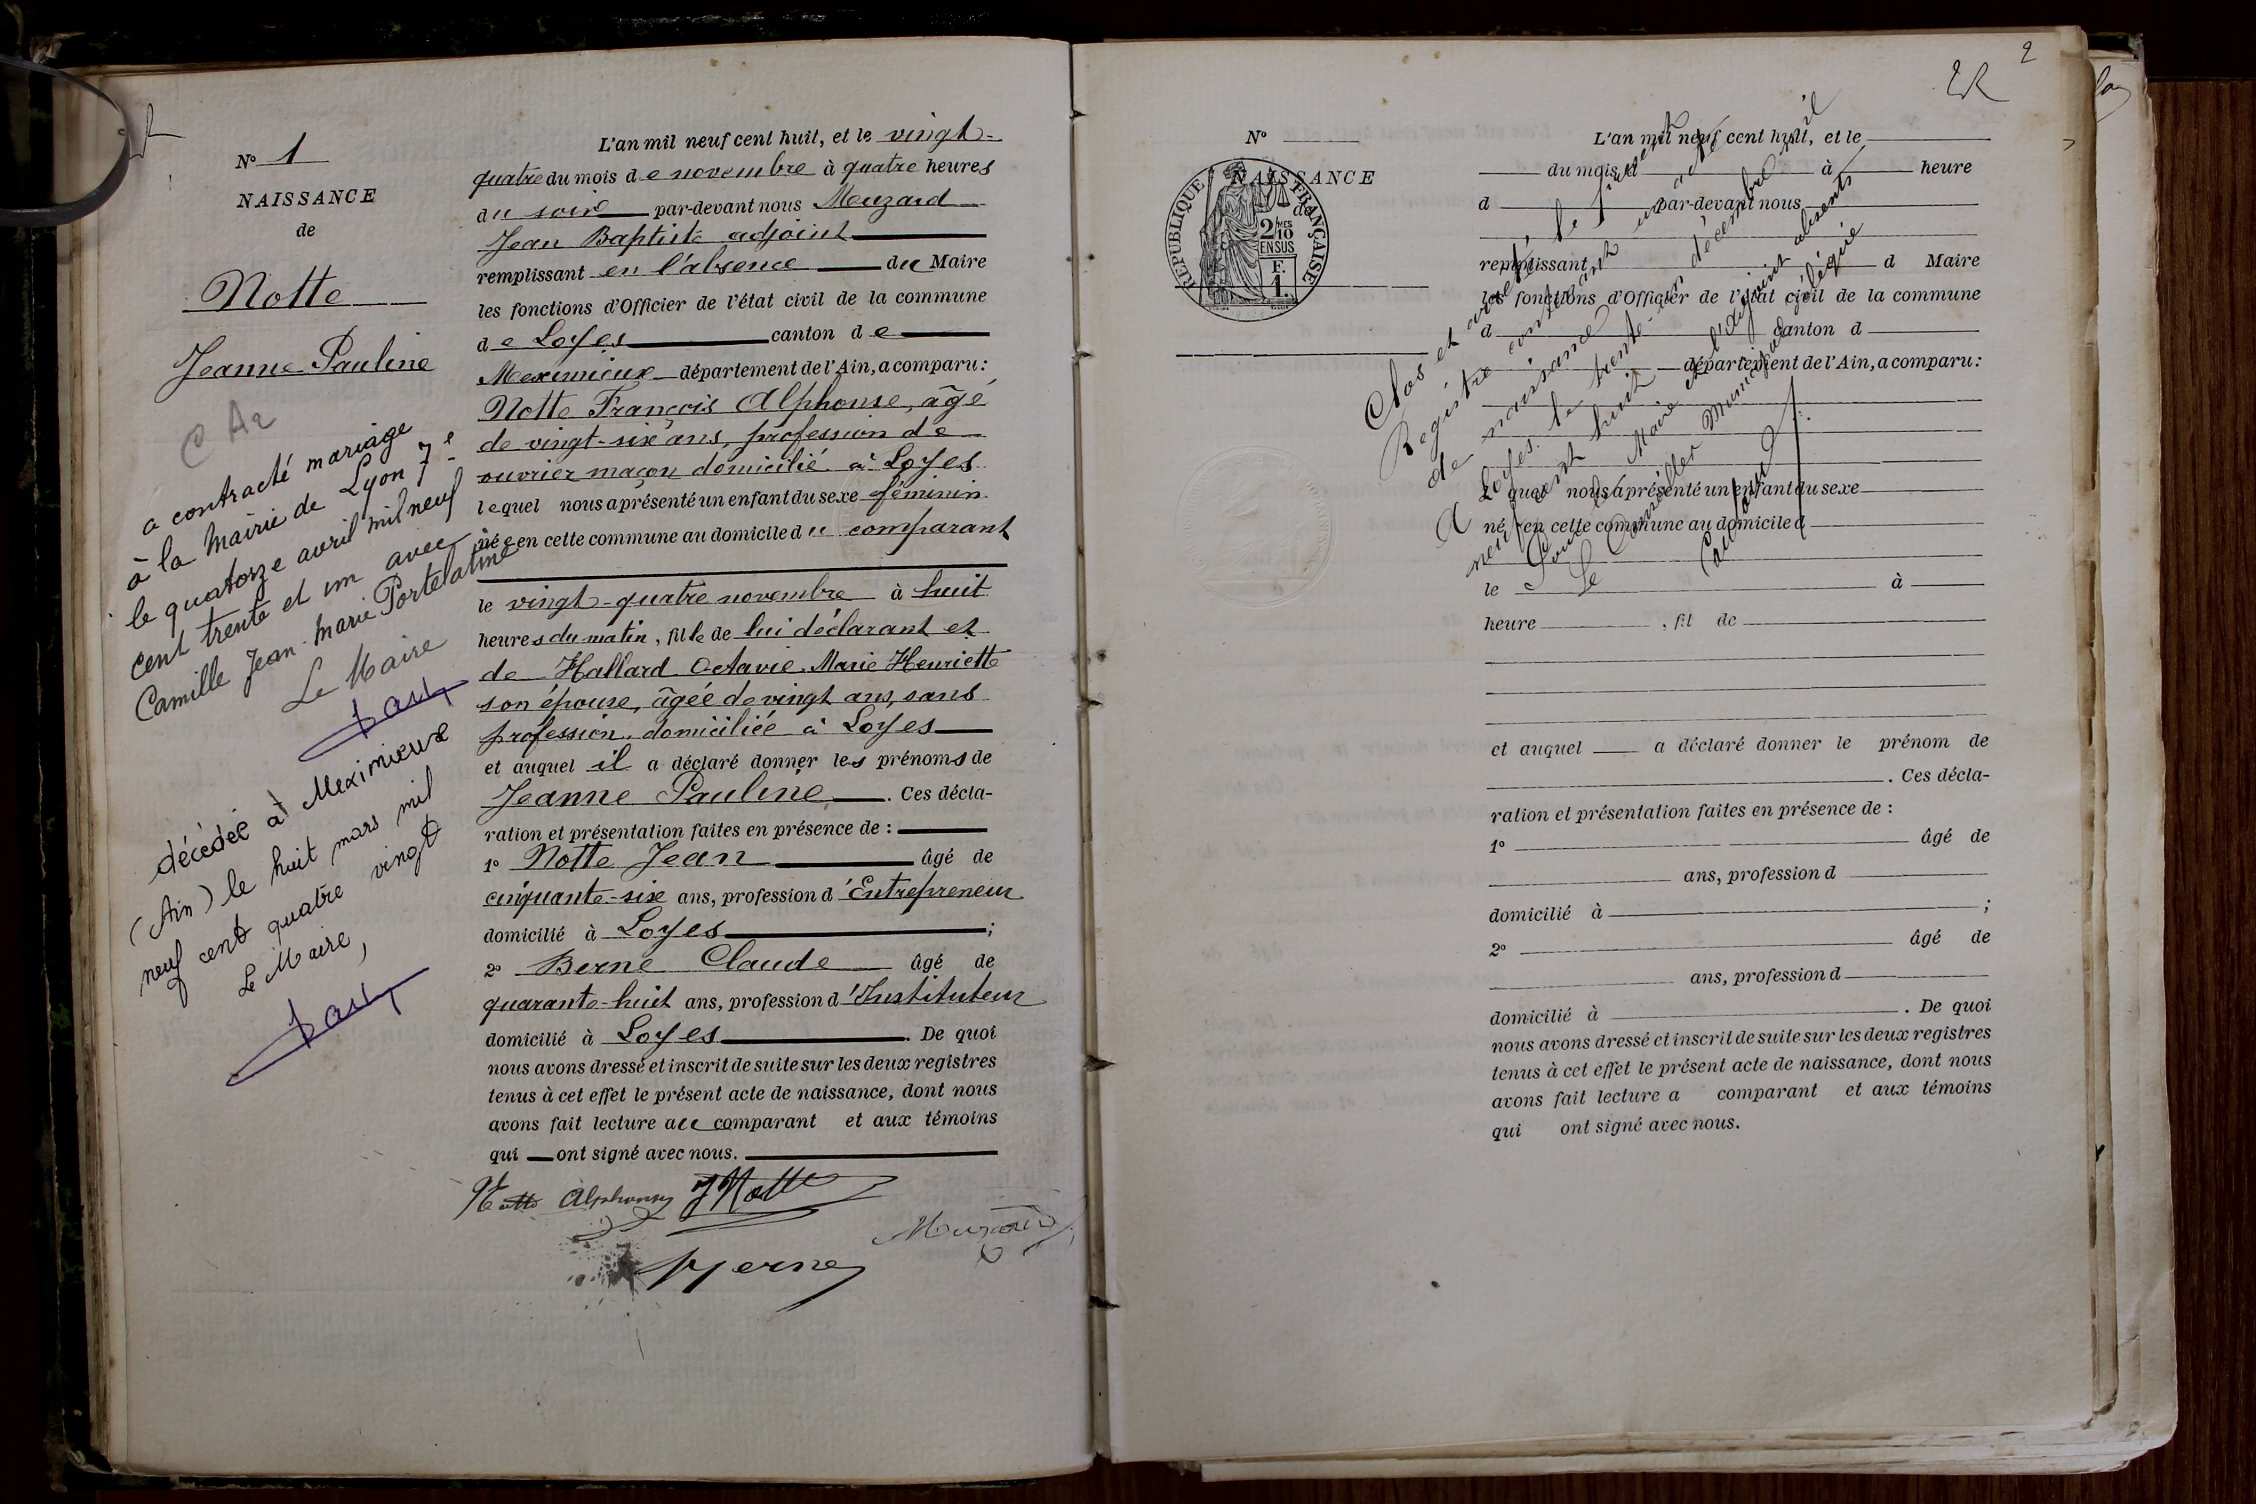 N° 1
NAISSANCE
de
Notte
Jeanne Pauline
a contracté mariage
à la Mairie de Lyon 7e
le quatorze avril mil neuf
cent trente et un avec
Camille Jean-Marie Portelatine
Le Maire
décédée à Meximieux
(Ain) le huit mars mil
neuf cent quatre vingt
Le Maire,
L'an mil neuf cent huit, et le vingt-
quatre du mois de novembre à quatre heures
du soir par-devant nous Meuzard
Jean Baptiste adjoint
remplissant en l'absence du Maire
les fonctions d'Officier de l'état civil de la commune
de Loyes canton de
Meximieux département de l'Ain, a comparu :
Notte François Alphonse, âgé
de vingt-six ans, profession de
ouvrier maçon domicilié à Loyes
lequel nous a présenté un enfant du sexe féminin
née en cette commune au domicile du comparant
le vingt-quatre novembre à huit
heures du matin, fille de lui déclarant et
de Hallard Octavie Marie Henriette
son épouse, âgée de vingt ans, sans
profession, domiciliée à Loyes
et auquel il a déclaré donner les prénoms de
Jeanne Pauline. Ces décla-
ration et présentation faites en présence de :
1° Notte Jean âgé de
cinquante-six ans, profession d'Entrepreneur
domicilié à Loyes ;
2° Berne Claude âgé de
quarante-huit ans, profession d'Instituteur
domicilié à Loyes. De quoi
nous avons dressé et inscrit de suite sur les deux registres
tenus à cet effet le présent acte de naissance, dont nous
avons fait lecture au comparant et aux témoins
qui ont signé avec nous.
Notte Alphonse J Notte
Meuzard
Berne
2
N°
NAISSANCE
de
RÉPUBLIQUE FRANÇAISE
2/10
EN SUS
F.
1.
L'an mil neuf cent huit, et le
du mois d à heure
d par-devant nous
remplissant d Maire
les fonctions d'Officier de l'état civil de la commune
d canton d
département de l'Ain, a comparu :
l quel nous a présenté un enfant du sexe
né en cette commune au domicile d
le à
heure , fil de
et auquel a déclaré donner le prénom de
. Ces décla-
ration et présentation faites en présence de :
1° âgé de
ans, profession d
domicilié à ;
2° âgé de
ans, profession d
domicilié à . De quoi
nous avons dressé et inscrit de suite sur les deux registres
tenus à cet effet le présent acte de naissance, dont nous
avons fait lecture a comparant et aux témoins
qui ont signé avec nous.
Clos et arrêté le présent
Registre contenant un acte
de naissance
A Loyes le trente-un décembre mil
neuf cent huit
Pour le Maire et l'Adjoint absents
Le Conseiller Municipal délégué